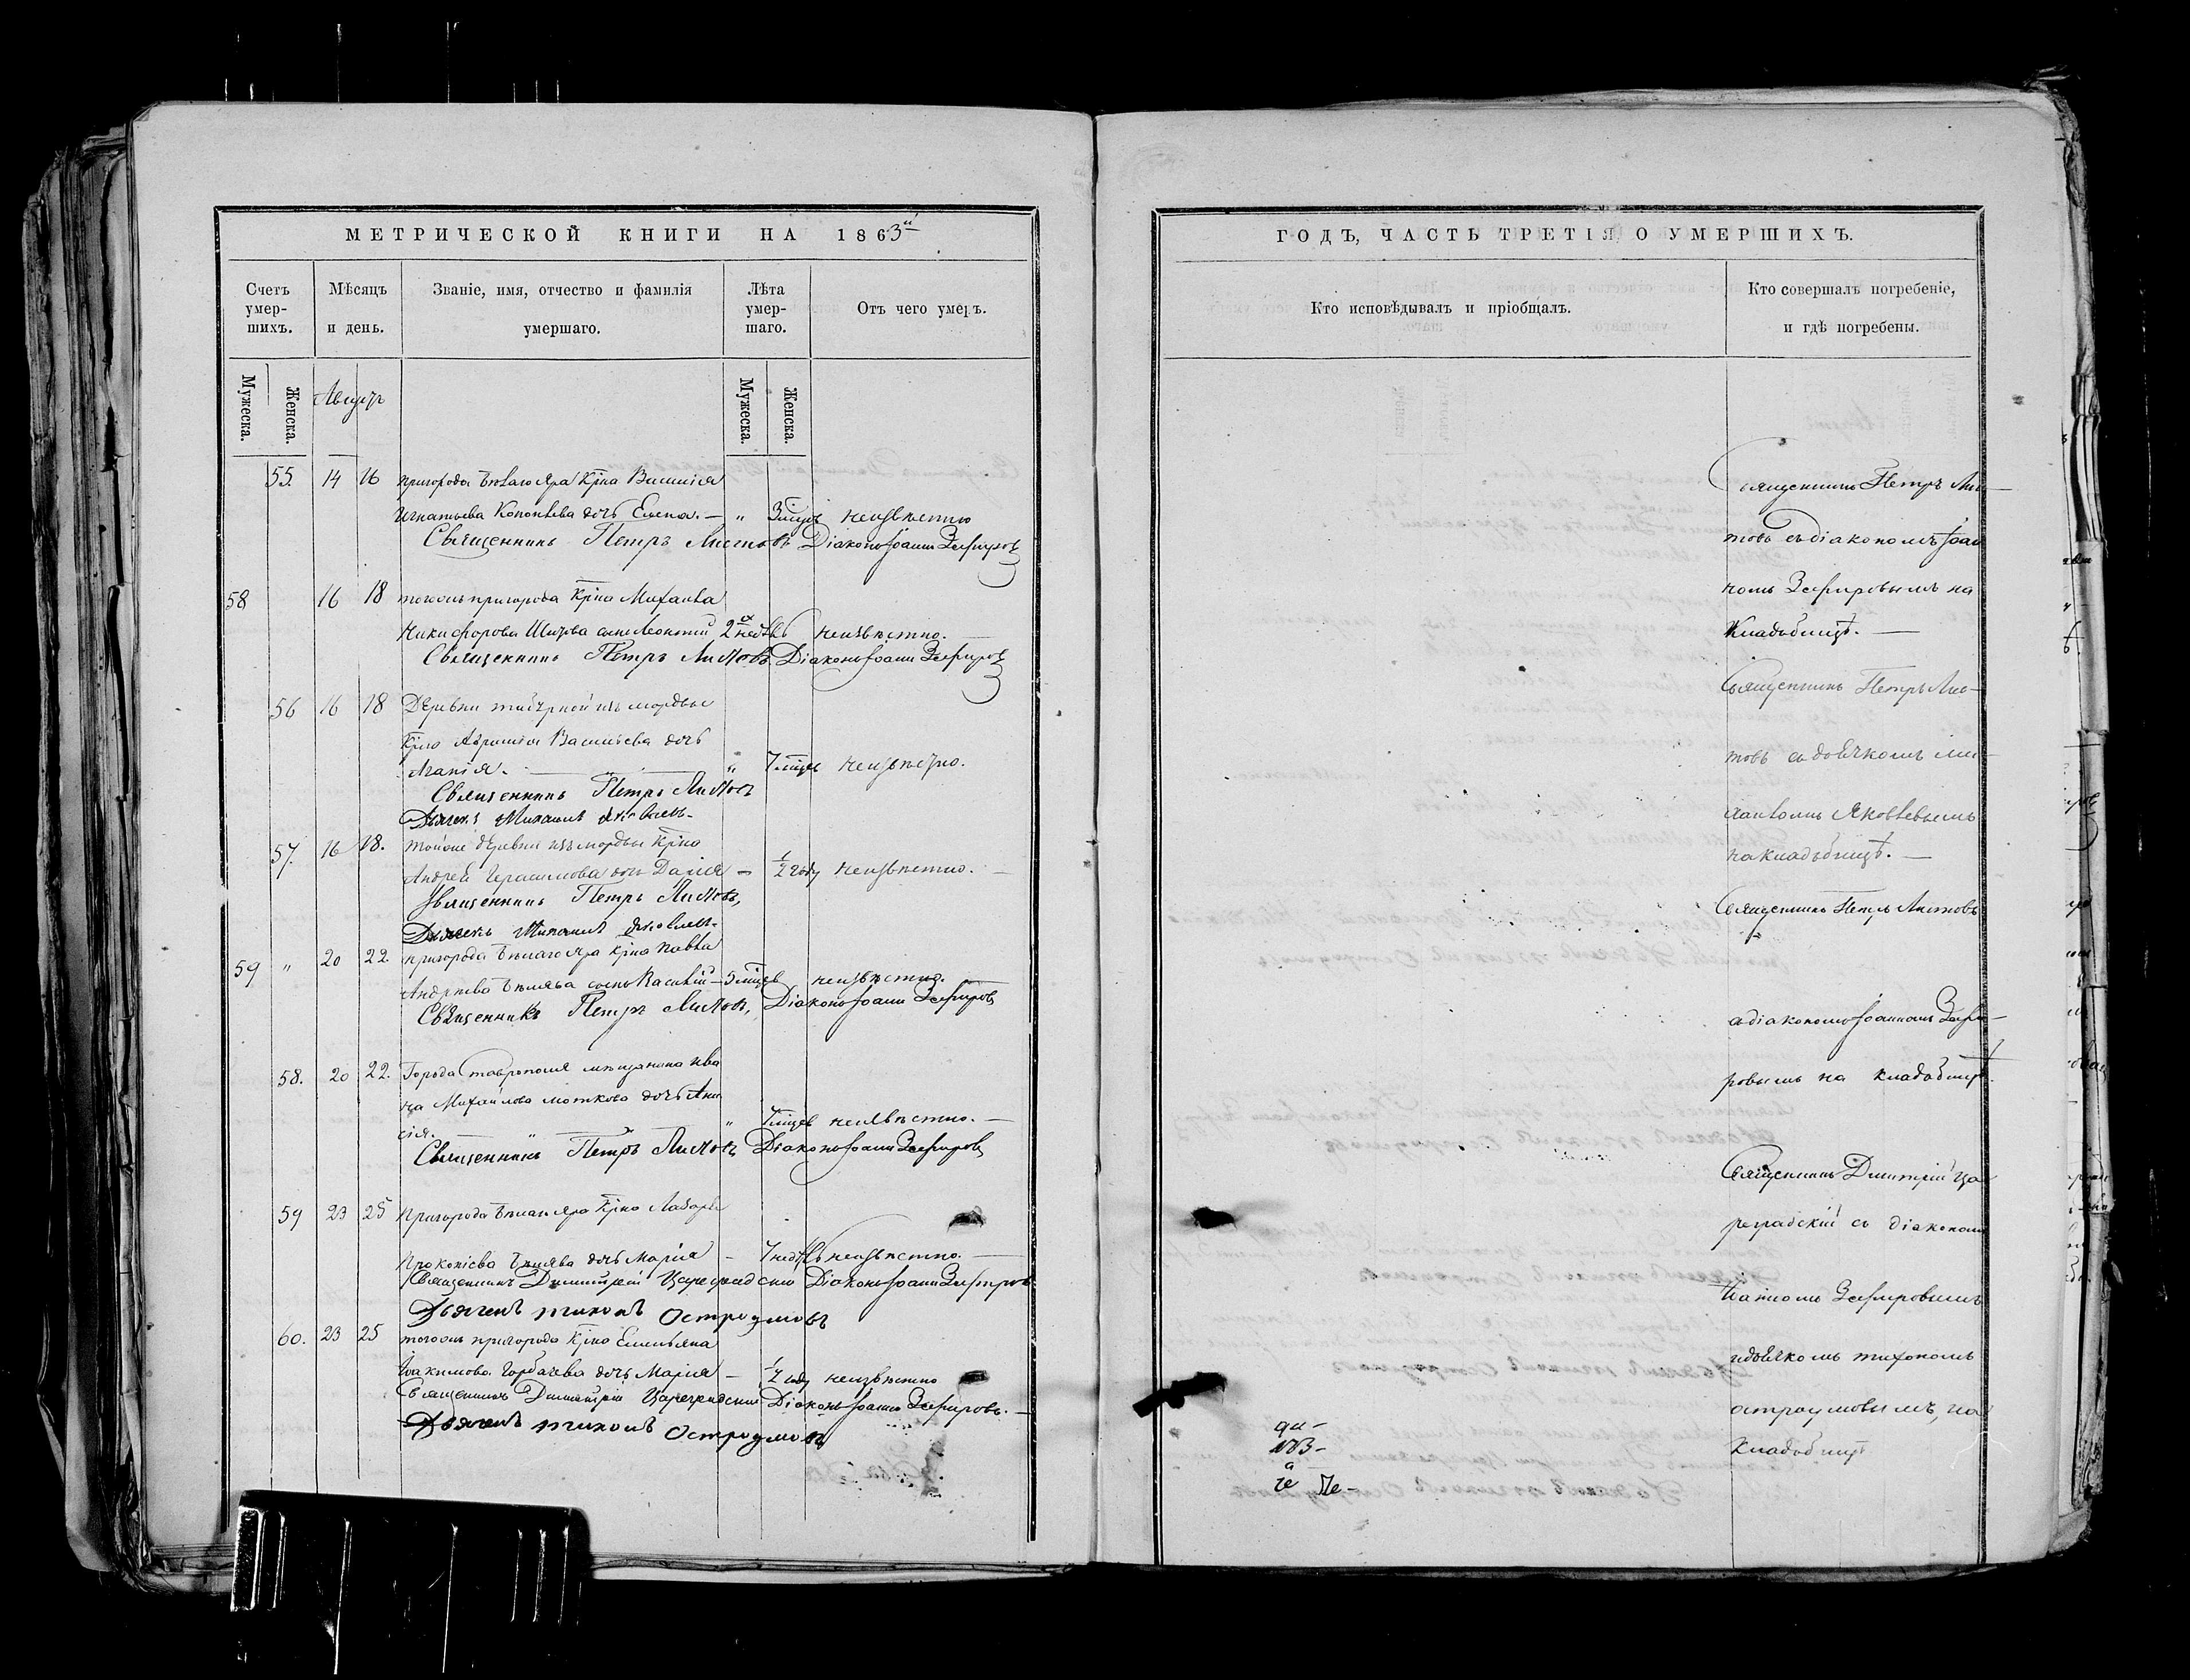 МЕТРИЧЕСКОЙ КНИГИ НА 1863й
Счетъ умер-шихъ.
Мѣсяцъ и день.
Званіе, имя, отчество и фамилія умершаго.
Лѣта умер-шаго.
Отъ чего умеръ.
Мужеска.
Женска.
Августъ
Мужеска.
Женска.
55. 14 16 пригорода Бѣлаго Яра Крна Василія
Игнатьева дочь Елена. — " неизвѣстно
Священникъ Петръ Листовъ Діаконъ Іоаннъ Зефировъ
58 16 18 тогожъ пригорода Крна Михаила
Никифорова сынъ Леонтій 2хъ недѣль неизвѣстно. —
Священникъ Петръ Листовъ Діаконъ Іоаннъ Зефировъ
56 16 18 Деревни изъ мордвы
Крно Васильева дочь
" 7 мцев неизвѣстно.
Священникъ Петръ Листовъ
Дьячекъ Михаилъ Яковлевъ
57. 16 18. тойже деревни изъ мордвы Крно
Андрея Герасимова дочь Дарія — ½ году неизвѣстно. —
Священникъ Петръ Листовъ,
Дьячекъ Михаилъ Яковлевъ
59 " 20 22. пригорода Бѣлаго Яра Крна Павла
Андреева Бѣляева сынъ Василій — 5 мцев неизвѣстно.
Священникъ Петръ Листовъ, Діаконъ Іоаннъ Зефировъ
58. 20 22. Города Ставрополя мѣщанина Ива
на Михайлова дочь Ани
сія. — " 7 мцев неизвѣстно. —
Священникъ Петръ Листовъ Діаконъ Іоаннъ Зефировъ
59 23 25 Пригорода Бѣлаго Яра Крно
Прокопіева Бѣляева дочь Марія — 7 недѣль неизвѣстно. —
Священникъ Димитрій Цареградскій Діаконъ Іоаннъ Зефировъ
Дьячекъ Тихонъ Остроумовъ
60. 23 25 тогожъ пригорода Крно Емельяна
Іоакимова Горбачева дочь Марія — ½ году неизвѣстно
Священникъ Димитрій Цареградскій Діаконъ Іоаннъ Зефировъ. —
Дьячекъ Тихонъ Остроумовъ
ГОДЪ, ЧАСТЬ ТРЕТІЯ, О УМЕРШИХЪ.
Кто исповѣдывалъ и пріобщалъ.
Кто совершалъ погребеніе,
и гдѣ погребены.
Священникъ Петръ Лис—
товъ съ діакономъ Іоан
номъ Зефировымъ на
Кладбищѣ. —
Священникъ Петръ Лис—
товъ съ дьячкомъ Ми—
хаиломъ Яковлевымъ
на кладбищѣ. —
Священникъ Петръ Листовъ
съ діакономъ Іоанномъ Зефи—
ровымъ на кладбищѣ.
Священникъ Димитрій Ца
реградскій съ діакономъ
Іоанномъ Зефировымъ
и дьячкомъ Тихономъ
Остроумовымъ, на
Кладбищѣ